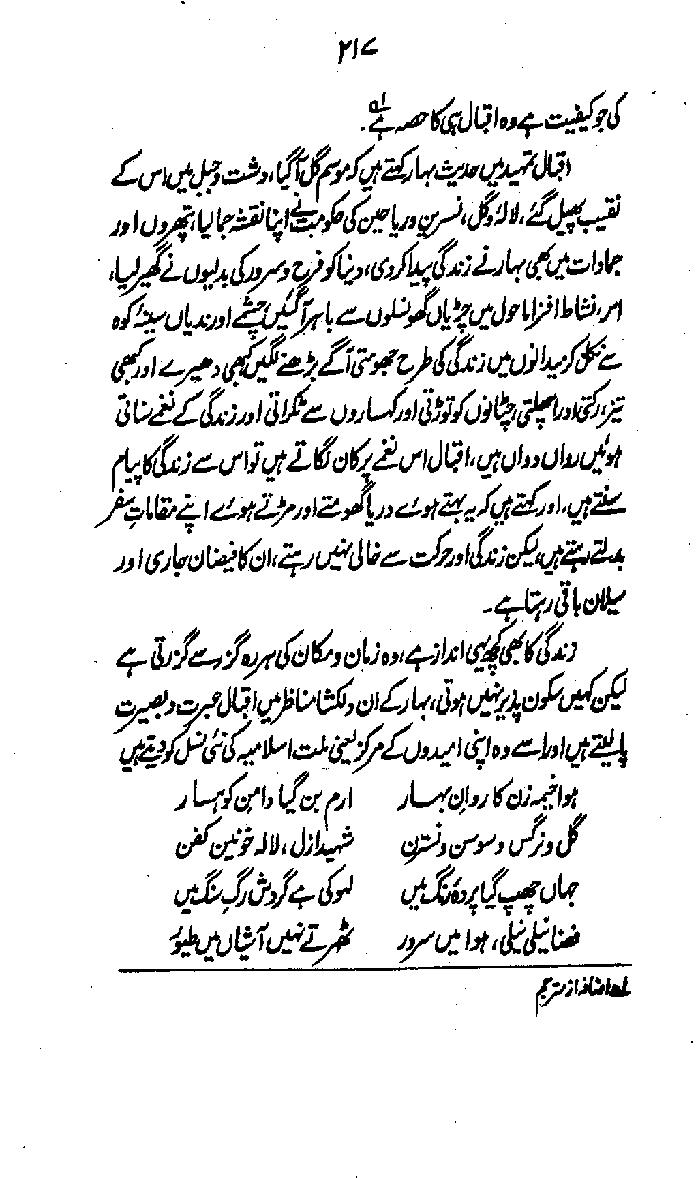 ۲۱۷
کی جو کیفیت ہے وہ اقبال ہی کا حصہ ہے۔ لہ
اقبال تمہید میں حدیث بہار کہتے ہیں کہ موسم گل آگیا، دشت و جبل میں اس کے
نقیب پھیل گئے، لالہ و گل، نسرین و ریاحین کی حکومت نے اپنا نقشہ جمالیا، پتھروں اور
جمادات میں بھی بہار نے زندگی پیدا کردی، دنیا کو فرح و سرور کی بدلیوں نے گھیر لیا،
اس نشاط افزا ماحول میں چڑیاں گھونسلوں سے باہر آگئیں چشمے اور ندیاں سینۂ کوہ
سے نکل کر میدانوں میں زندگی کی طرح جھومتی آگے بڑھنے لگیں کبھی دھیرے اور کبھی
تیز، رکتی اور اچھلتی، چٹانوں کو توڑتی اور کہساروں سے ٹکراتی اور زندگی کے نغمے سناتی
ہوئیں رواں دواں ہیں، اقبال اس نغمے پر کان لگاتے ہیں تو اس سے زندگی کا پیام
سنتے ہیں، اور کہتے ہیں کہ یہ بہتے ہوئے دریا گھومتے اور مڑتے ہوئے اپنے مقاماتِ سفر
بدلتے رہتے ہیں، لیکن زندگی اور حرکت سے خالی نہیں رہتے، ان کا فیضان جاری اور
سیلان باقی رہتا ہے۔
زندگی کا بھی کچھ یہی انداز ہے، وہ زمان و مکان کی ہر رہ گزر سے گزرتی ہے
لیکن کہیں سکون پذیر نہیں ہوتی، بہار کے ان دلکشا مناظر میں اقبال عبرت و بصیرت
پا لیتے ہیں اور اسے وہ اپنی امیدوں کے مرکز یعنی ملت اسلامیہ کی نئی نسل کو دیتے ہیں
ہوا خیمہ زن کاروانِ بہار ارم بن گیا دامن کوہسار
گل و نرگس و سوسن و نسترن شہید ازل، لالہ خونیں کفن
جہاں چھپ گیا پردۂ رنگ میں لہو کی ہے گردش رگِ سنگ میں
فضا نیلی نیلی، ہوا میں سرور ٹھہرتے نہیں آشیاں میں طیور
لہ اضافہ از مترجم